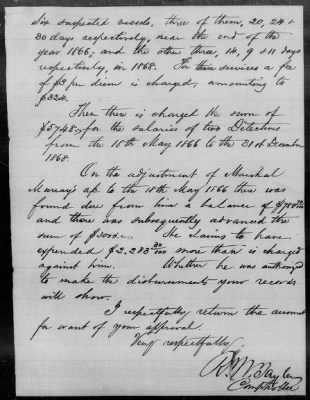 Six suspected vessels, three of them, 20, 24 &
30 days respectively, near the end of the
year 1866; and the other three, 14, 9 & 11 days
respectively, in 1868. For these services a fee
of $3 per diem is charged, amounting to
$324.
Then there is charged the sum of
$5748. for the salaries of two Detectives
from the 18th May 1866 to the 21st December
1868.
On the adjustment of Marshal
Murray's a/c to the 18th May 1866 there was
found due from him a balance of
and there was subsequently advanced the
sum of $3000. He claims to have
expended $2,283 30/100 more than is charged
against him. Whether he was authorized
to make the disbursements your records
will show.
I respectfully return the account
for want of your approval.
Very respectfully
R. W. Tayler
Comptroller